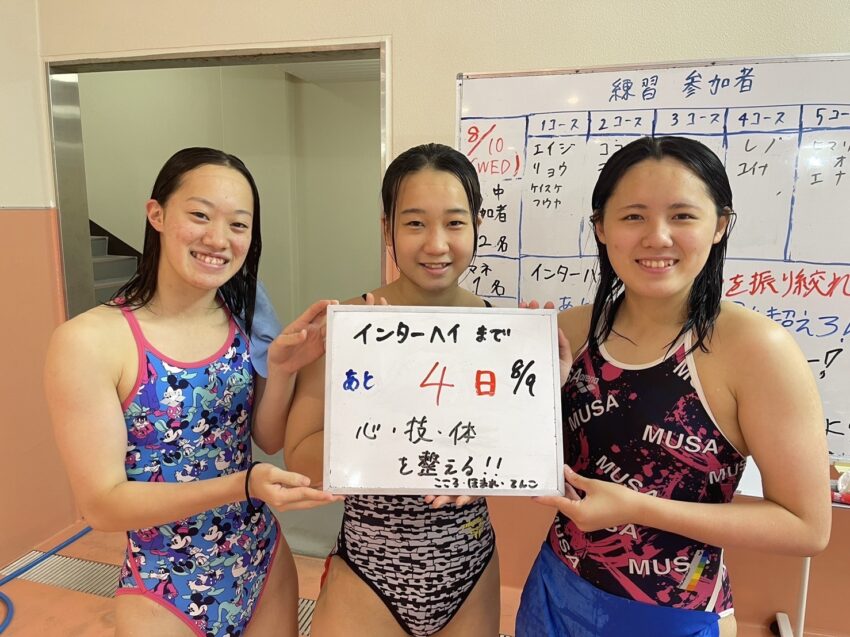 練習 参加者
8/10
(WED)
1コース
2コース
3コース
4コース
5コ
エイジ
リョウ
ケイスケ
フウヤ
レノ
ユイナ
エナ
中
加者
2名
マネ
1名
インターハ
を振り絞れ
超えろ
インターハイ まで
あと 4日 8/9
心・技・体
を整える!!
こころ・ほまれ・てんこ
arena
MUSA
MUSA
MUSA
MUSA
MUSA